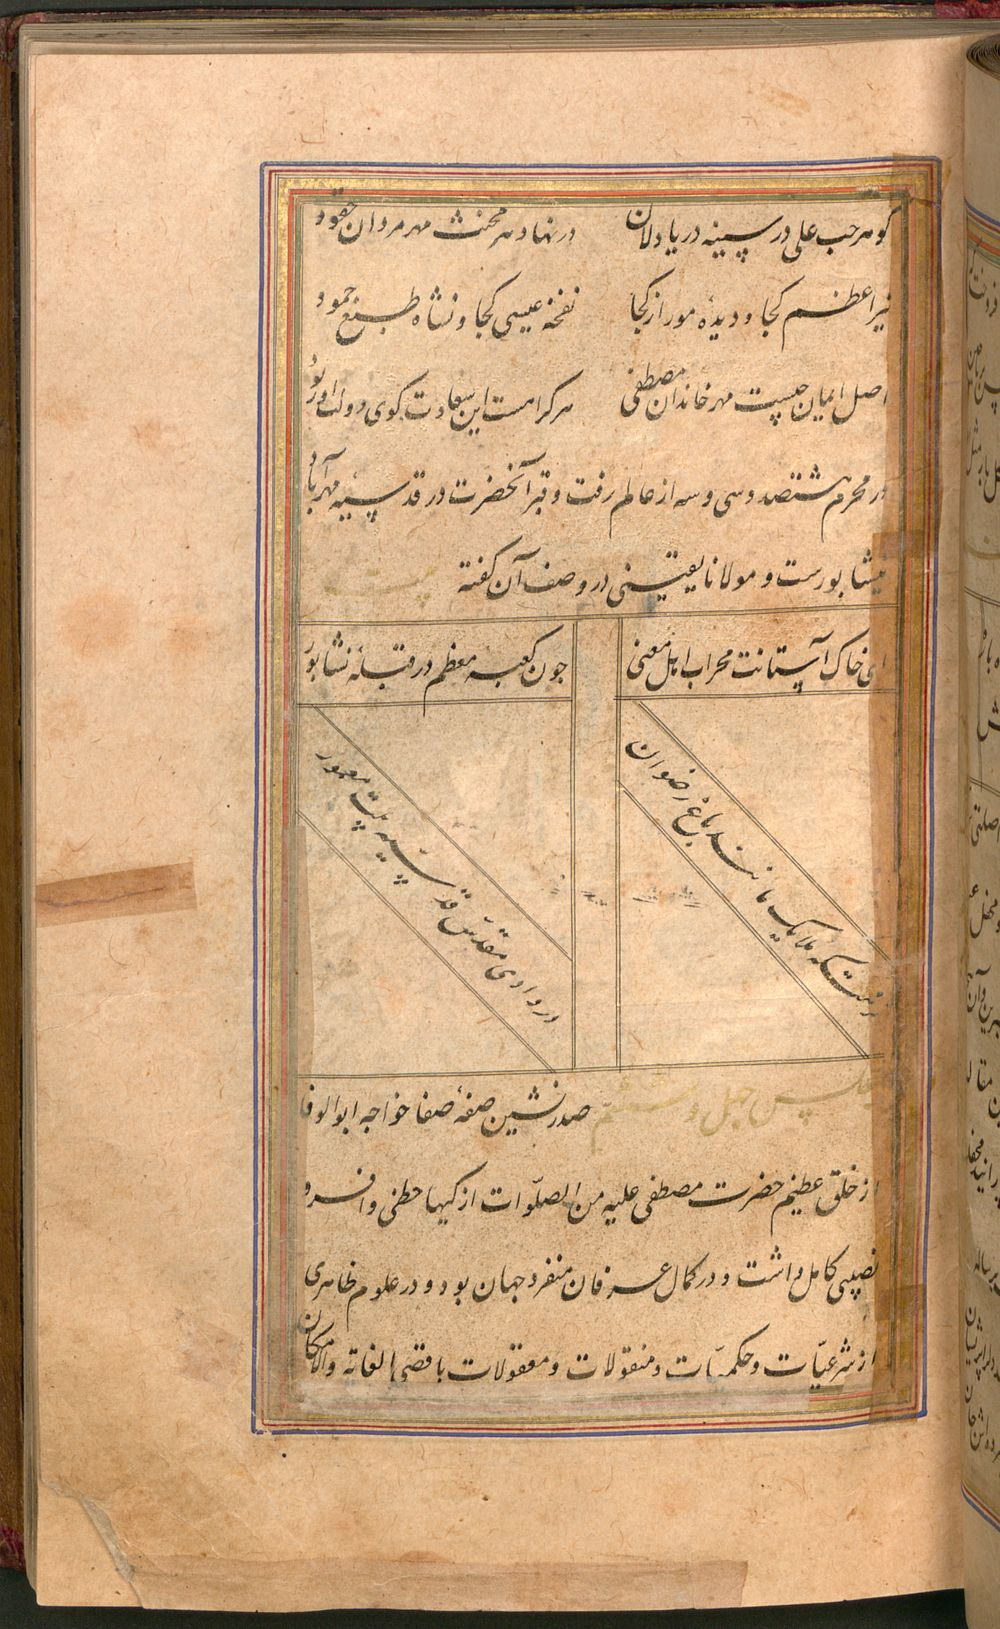 گوهر حب علی در سینه دریا دلان در نهاد هر مخنث مهر مروان حقود
نیر اعظم کجا و دیدهٔ مور از کجا نفخه عیسی کجا و نشاه طبع جمود
اصل ایمان چیست مهر خاندان مصطفی هر کرا هست این سعادت کوی دولت او ربود
در محرم هشتصد و سی و سه از عالم رفت و قبر آنحضرت در قدسیه مهرآباد
نیشابورست و مولانا یقینی در وصف آن گفته
ای خاک آستانت محراب اهل معنی چون کعبه معظم در قبلهٔ نشابور
ملایک مانند باغ رضوان
در وادی مقدس قدسیه بیت معمور
مجلس چهل و ششم صدرنشین صفهٔ صفا خواجه ابوالوفا
از خلق عظیم حضرت مصطفی علیه من الصلوات ازکیها حظی وافر و
نصیبی کامل داشت و در کمال عرفان منفرد جهان بود و در علوم ظاهری
از شرعیات و حکمیات و منقولات و معقولات باقصی الغایه والامکان